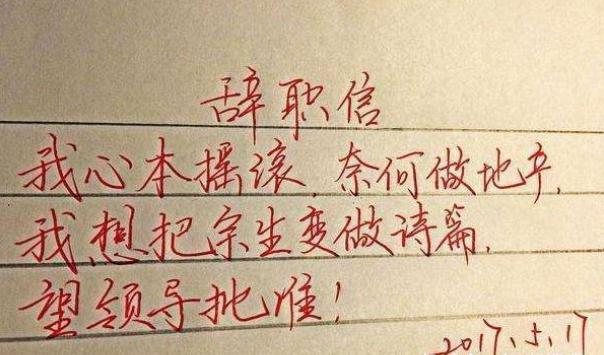 辞职信
我心本摇滚,奈何做地产,
我想把余生变做诗篇,
望领导批准!
2017.5.17